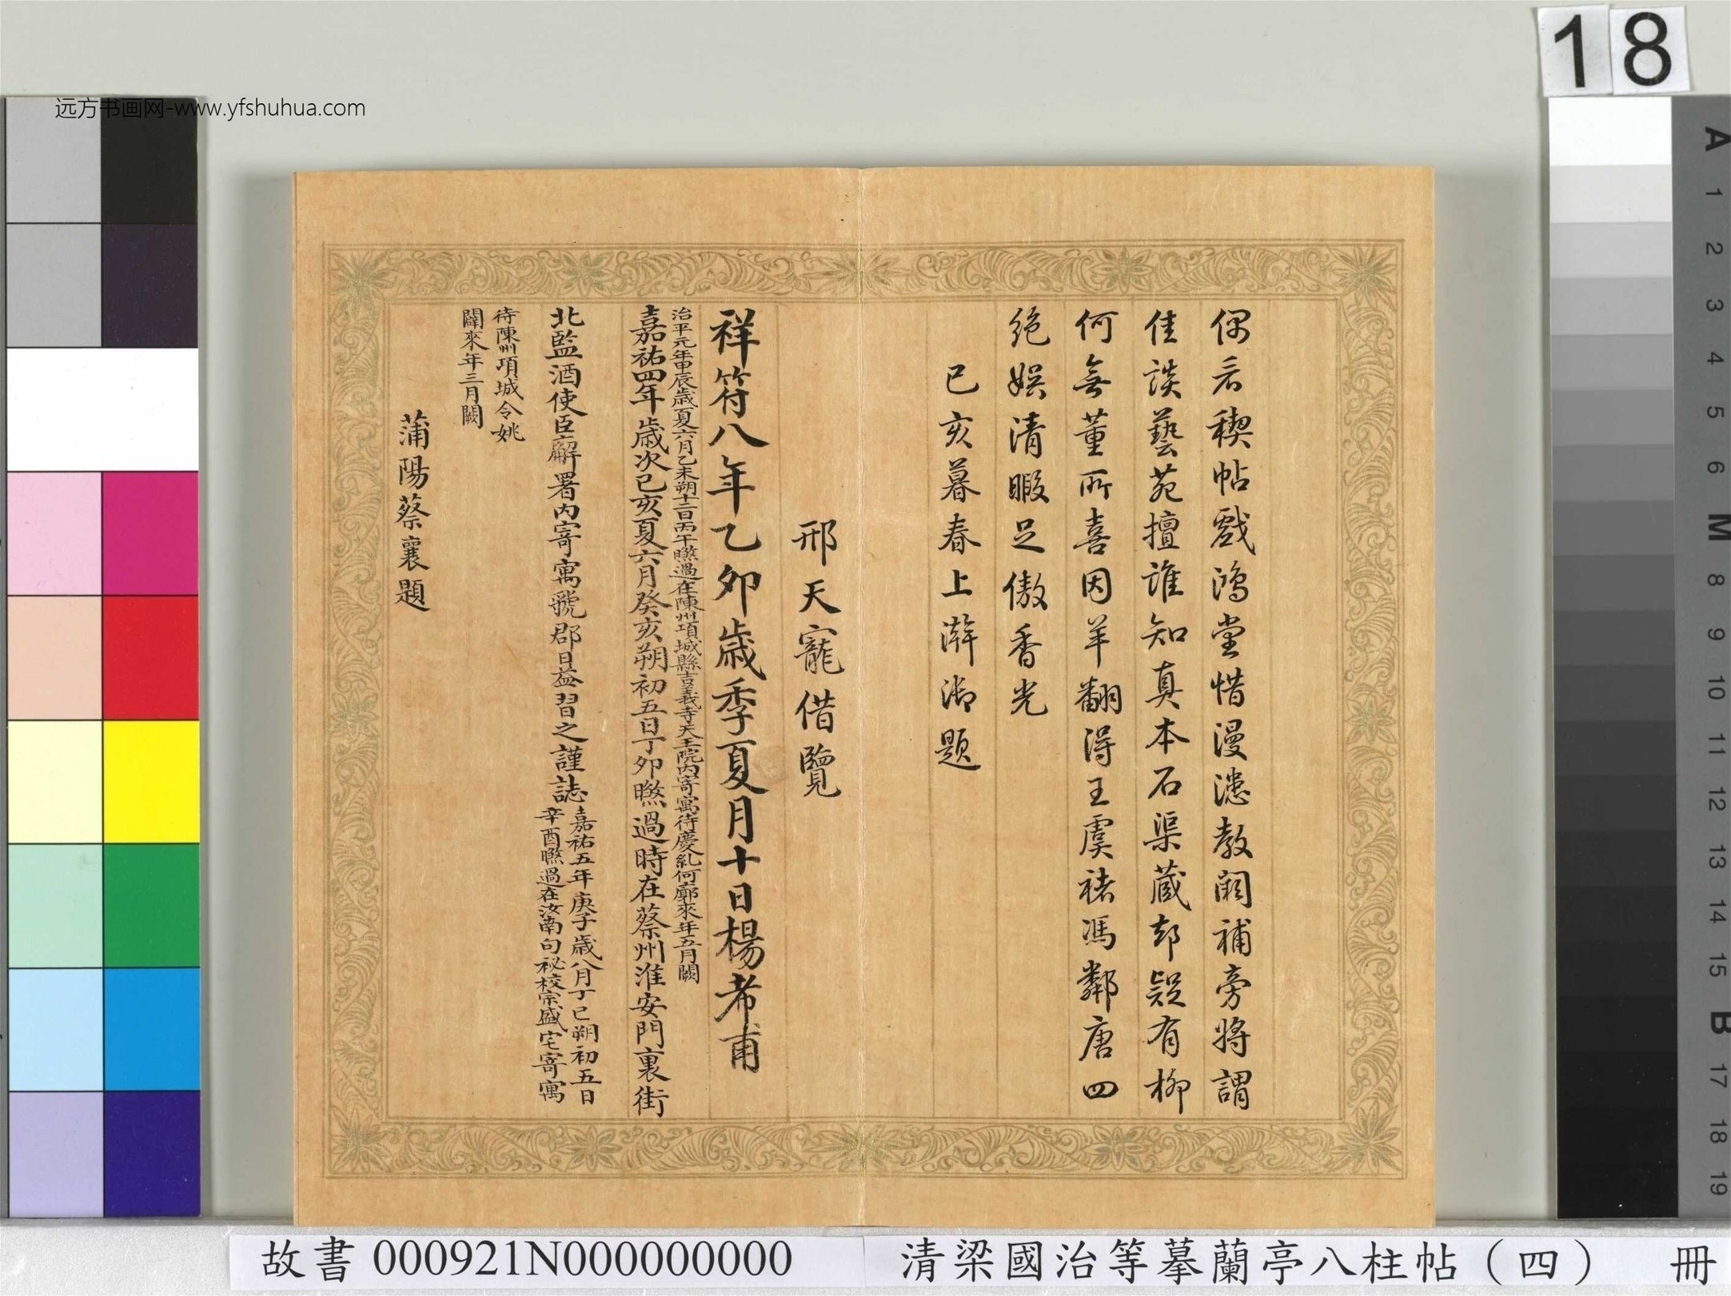 18
远方书画网-www.yfshuhua.com
偶看禊帖戲鴻堂惜漫漶教闕補旁將謂
佳談藝苑擅誰知真本石渠藏却疑有柳
何無董所喜因羊翻得王虞褚馮鄰唐四
絶娱清暇足傲香光
已亥暮春上澣御題
邢天寵借覽
祥符八年乙夘歳季夏月十日楊希甫
治平元年甲辰歳夏六月乙未朔十二日丙午㬠過在陳州項城縣吉義寺天王院内寄寓待慶糺何廓來年五月闕
嘉祐四年歳次已亥夏六月癸亥朔初五日丁夘㬠過時在蔡州淮安門裏街
北監酒使臣廨署内寄寓虢郡日益習之謹誌
嘉祐五年庚子歳八月丁已朔初五日
辛酉㬠過在汝南句祕校宗盛宅寄寓
待陳州項城令姚
闢來年三月闕
蒲陽蔡襄題
A 1 2 3 4 5 6 M 8 9 10 11 12 13 14 15 B 17 18 19
故書 000921N000000000
清梁國治等摹蘭亭八柱帖（四） 冊